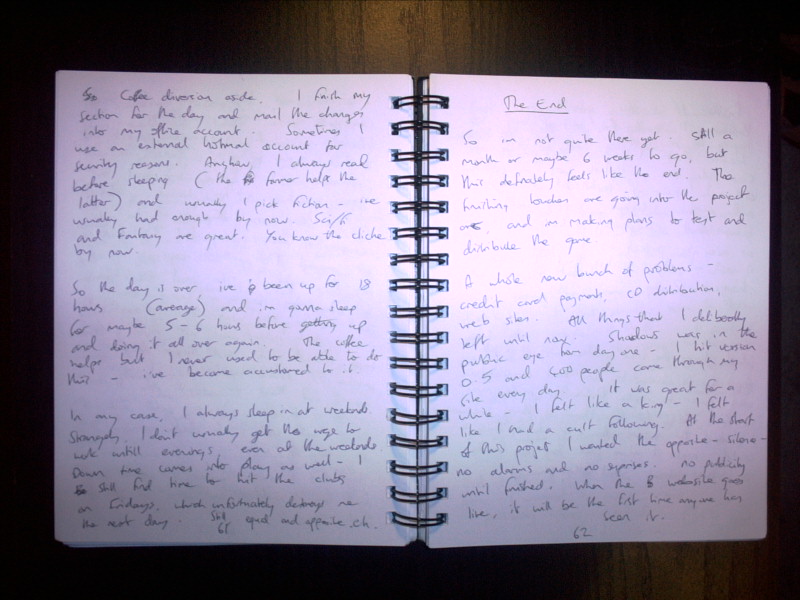 So Coffee diversion aside, I finish my
section for the day and mail the changes
into my offline account. Sometimes I
use an external hotmail account for
security reasons. Anyhow, I always read
before sleeping (the former helps the
latter) and usually I pick fiction - ive
usually had enough by now. Sci/fi
and Fantasy are great. You know the cliche
by now.
So the day is over. ive been up for 18
hours (average) and im gonna sleep
for maybe 5-6 hours before getting up
and doing it all over again. The coffee
helps but I never used to be able to do
this - ive become accustomed to it.
In my case, I always sleep in at weekends.
Strangely, I dont usually get the urge to
work untill evenings, even at the weekends.
Down time comes into play as well - I
still find time to hit the clubs
on Fridays, which unfortunately destroys me
the next day. Still equal and opposite, eh.
61
The End
So im not quite there yet. Still a
month or maybe 6 weeks to go, but
this definately feels like the end. The
finishing touches are going into the project
and im making plans to test and
distribute the game
A whole new bunch of problems -
credit card payments, CD distribution,
web sites. All things that I deliberatly
left until now. Shadows was in the
public eye from day one - I hit version
0.5 and 400 people came through my
site every day. It was great for a
while - I felt like a king - I felt
like I had a cult following. At the start
of this project I wanted the opposite - silence -
no alarms and no suprises. no publicity
until finished. When the B website goes
live, it will be the first time anyone has
seen it.
62